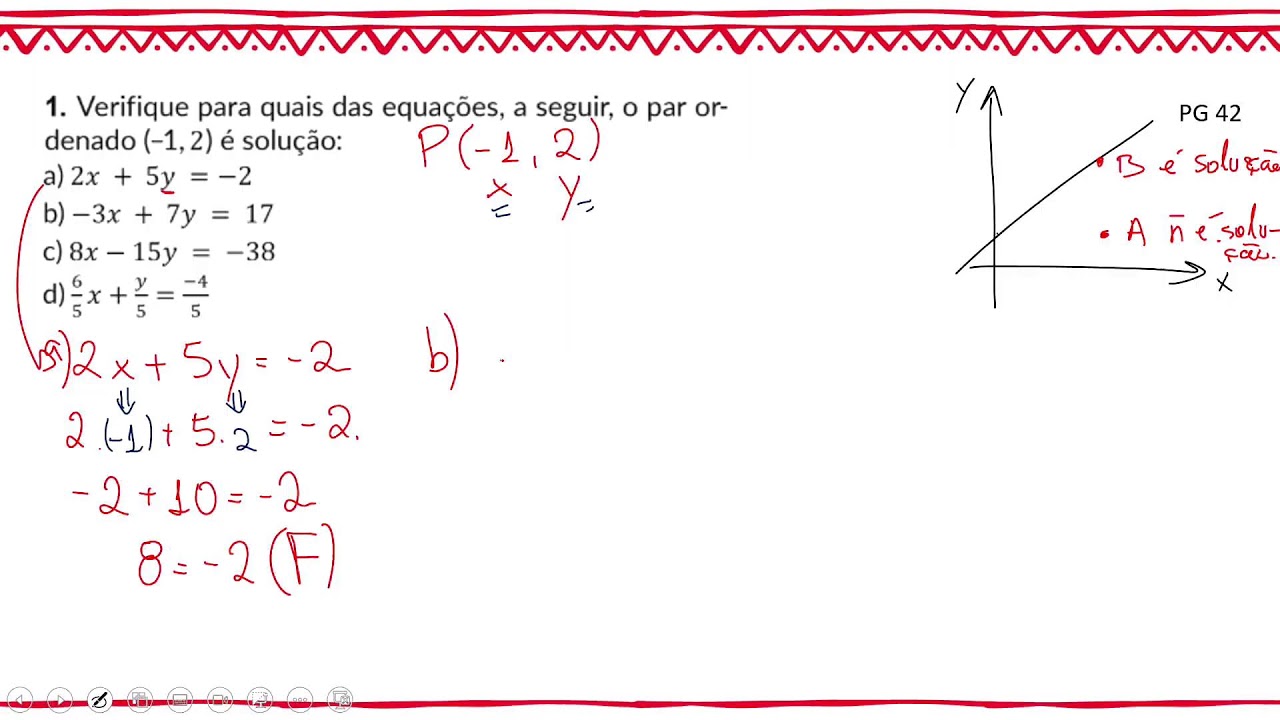 1. Verifique para quais das equações, a seguir, o par or-
denado (−1, 2) é solução:
a) 2x + 5y = −2
b) −3x + 7y = 17
c) 8x − 15y = −38
d) 6/5 x + y/5 = −4/5
P(-1, 2)
x y
= =
Y
PG 42
• B é solução
• A ñ é solu-
ção.
X
a) 2x + 5y = -2
2.(-1) + 5.2 = -2.
-2 + 10 = -2
8 = -2 (F)
b) .